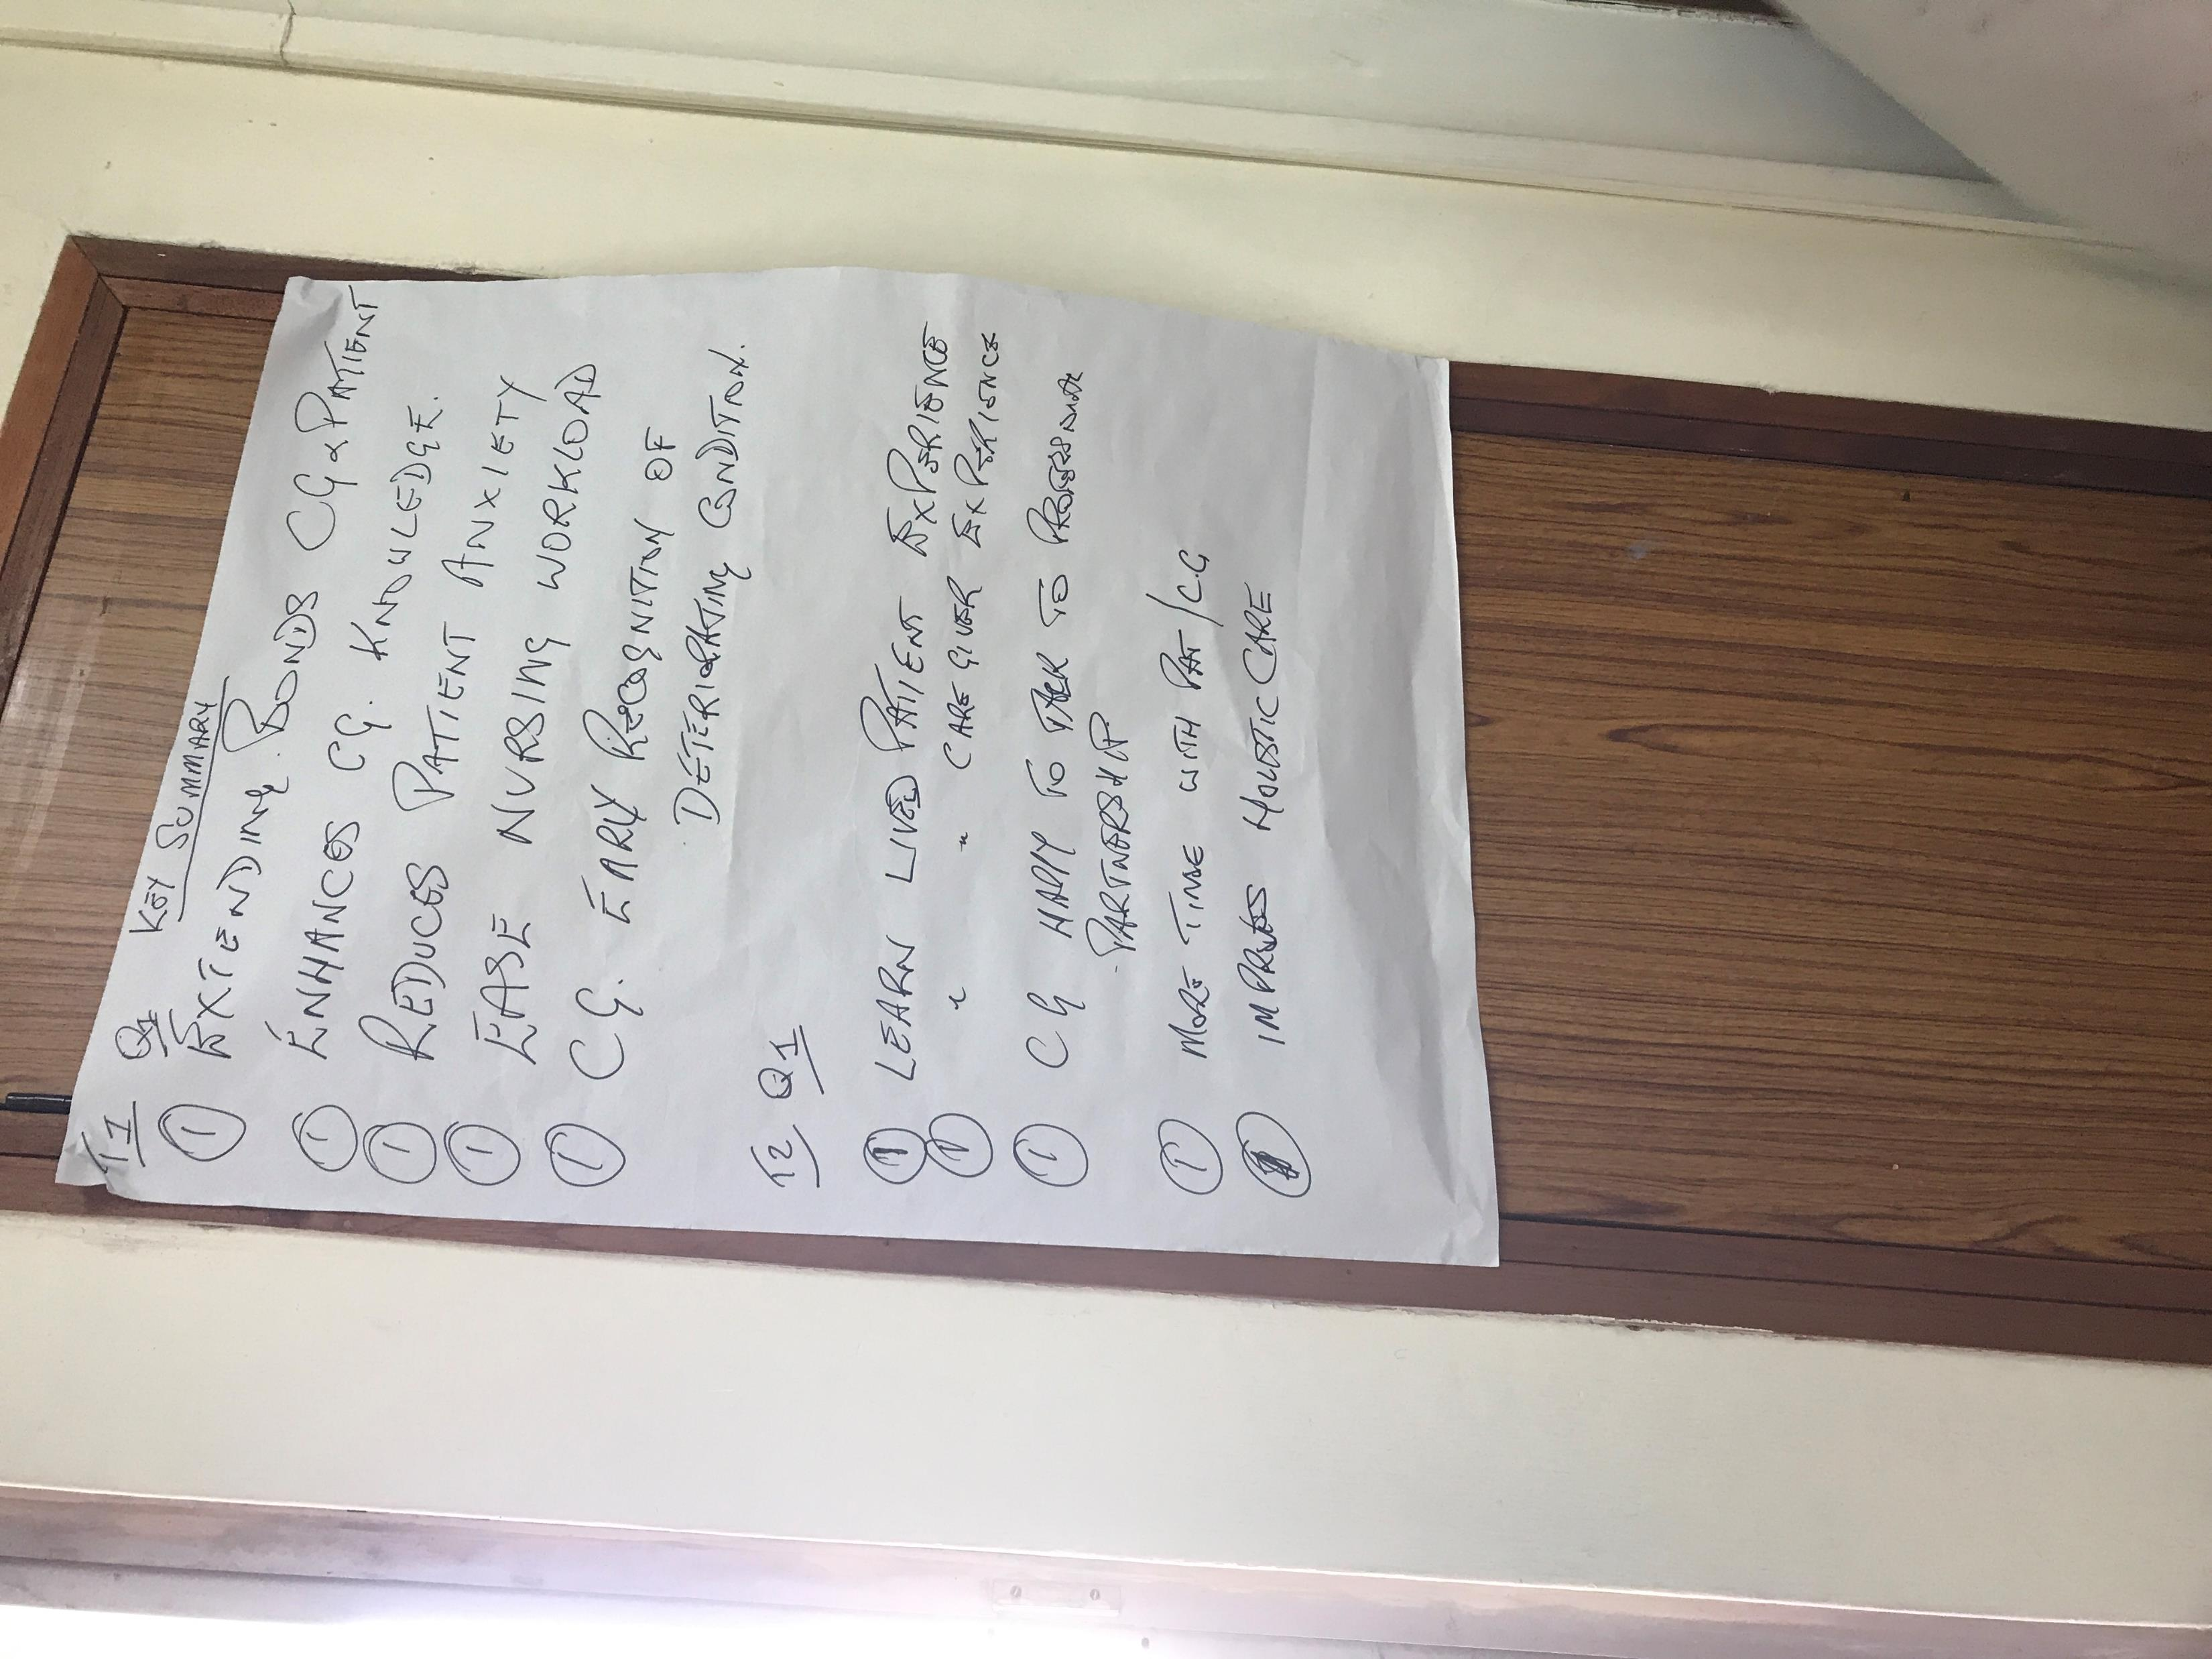 T1 Q1 KEY SUMMARY
① EXTENDING BONDS CG & PATIENT
① ENHANCES CG. KNOWLEDGE.
① REDUCES PATIENT ANXIETY
① EASE NURSING WORKLOAD
① CG. EARLY RECOGNITION OF
DETERIORATING CONDITION.
T2 Q1
① LEARN LIVED PATIENT EXPERIENCE
① " " CARE GIVER EXPERIENCE
① CG HAPPY TO TALK TO
- PARTNERSHIP
① MORE TIME WITH PAT/C.G
IMPROVES HOLISTIC CARE